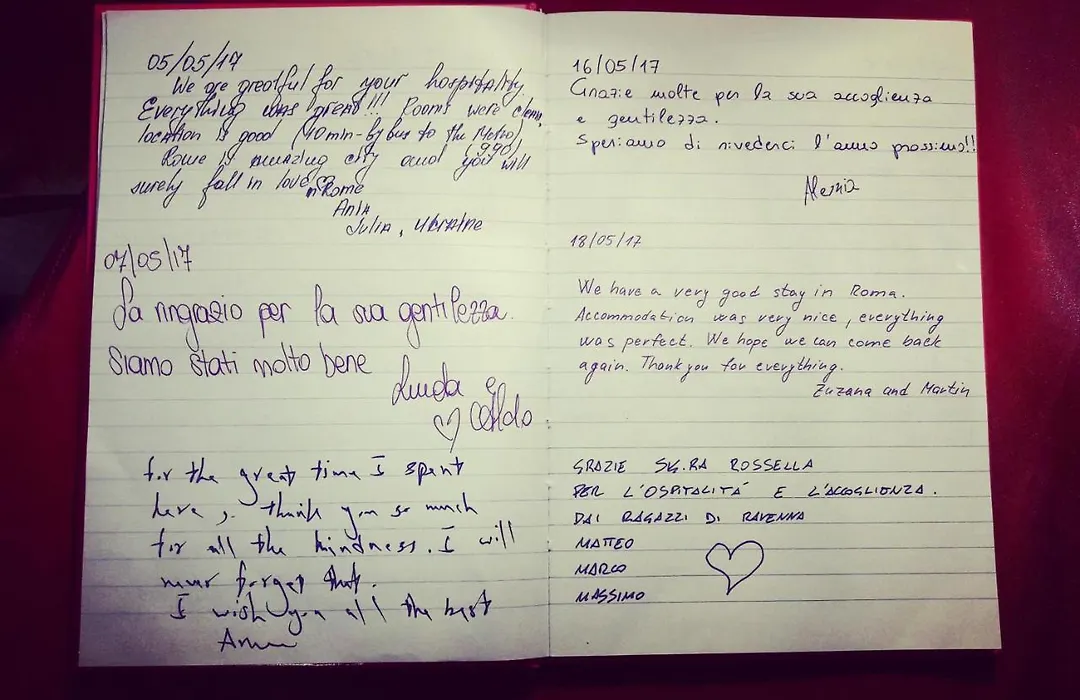 05/05/17
We are greatful for your hospitality.
Everything was great!!! Rooms were clean,
location is good (10 min-by bus to the Metro)
(990)
Rome is amazing city and you will
surely fall in love ♡
in Rome
Ania
Julia, Ukraine
07/05/17
La ringrazio per la sua gentilezza.
Siamo stati molto bene
e
♡ Aldo
for the great time I spent
here, thank you so much
for all the kindness. I will
never forget that.
I wish you all the best
16/05/17
Grazie molte per la sua accoglienza
e gentilezza.
Speriamo di rivederci l'anno prossimo!!
18/05/17
We have a very good stay in Roma.
Accommodation was very nice, everything
was perfect. We hope we can come back
again. Thank you for everything.
Zuzana and Martin
GRAZIE SIG.RA ROSSELLA
PER L'OSPITALITÁ E L'ACCOGLIENZA.
DAI RAGAZZI DI RAVENNA
MATTEO
MARCO
MASSIMO